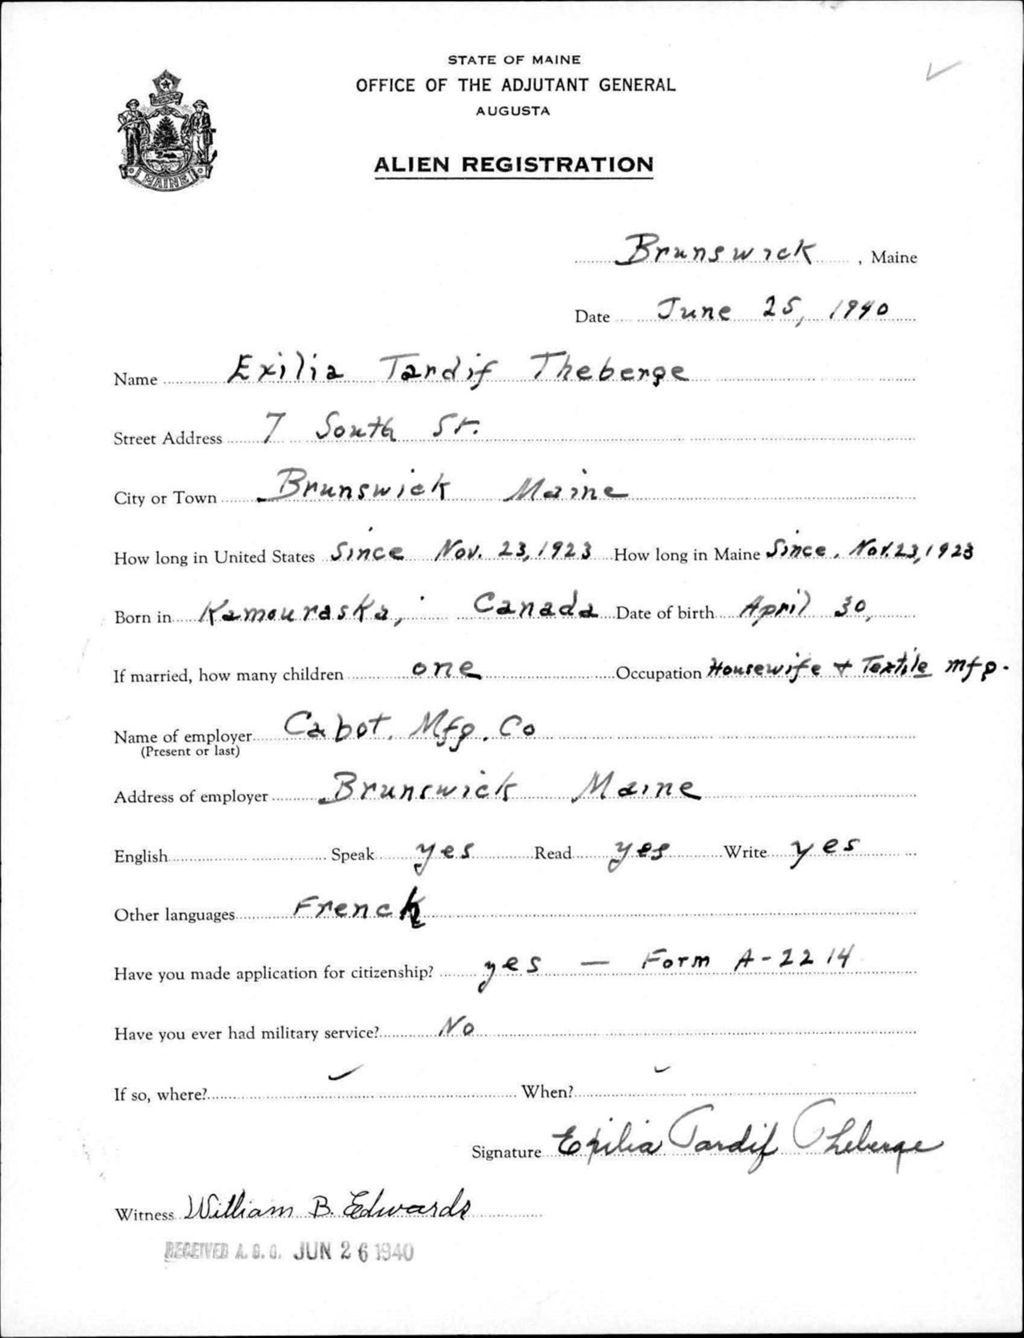 STATE OF MAINE
OFFICE OF THE ADJUTANT GENERAL
AUGUSTA
ALIEN REGISTRATION
MAINE
Brunswick, Maine
Date June 25, 1940
Name Exilia Tardif Theberge
Street Address 7 South St.
City or Town Brunswick Maine
How long in United States Since Nov. 23, 1923 How long in Maine Since Nov. 23, 1923
Born in Kamouraska, Canada Date of birth April 30,
If married, how many children one Occupation Housewife + Textile mfg.
Name of employer Cabot Mfg. Co
(Present or last)
Address of employer Brunswick Maine
English Speak yes Read yes Write yes
Other languages French
Have you made application for citizenship? yes — Form A-2214
Have you ever had military service? No
If so, where? When?
Signature Exilia Tardif Theberge
Witness William B. Edwards
RECEIVED A.G.O. JUN 26 1940